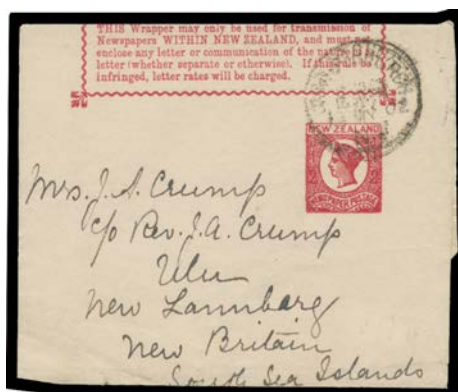 THIS Wrapper may only be used for transmission of
Newspapers WITHIN NEW ZEALAND, and must
enclose any letter or communication of the nature
letter (whether separate or otherwise). If this rule
infringed, letter rates will be charged.
NEW ZEALAND
NEWSPAPER POSTAGE
Mrs. J. A. Crump
c/o Rev. J. A. Crump
Ulu
New Lannbarg
New Britain
South Sea Islands